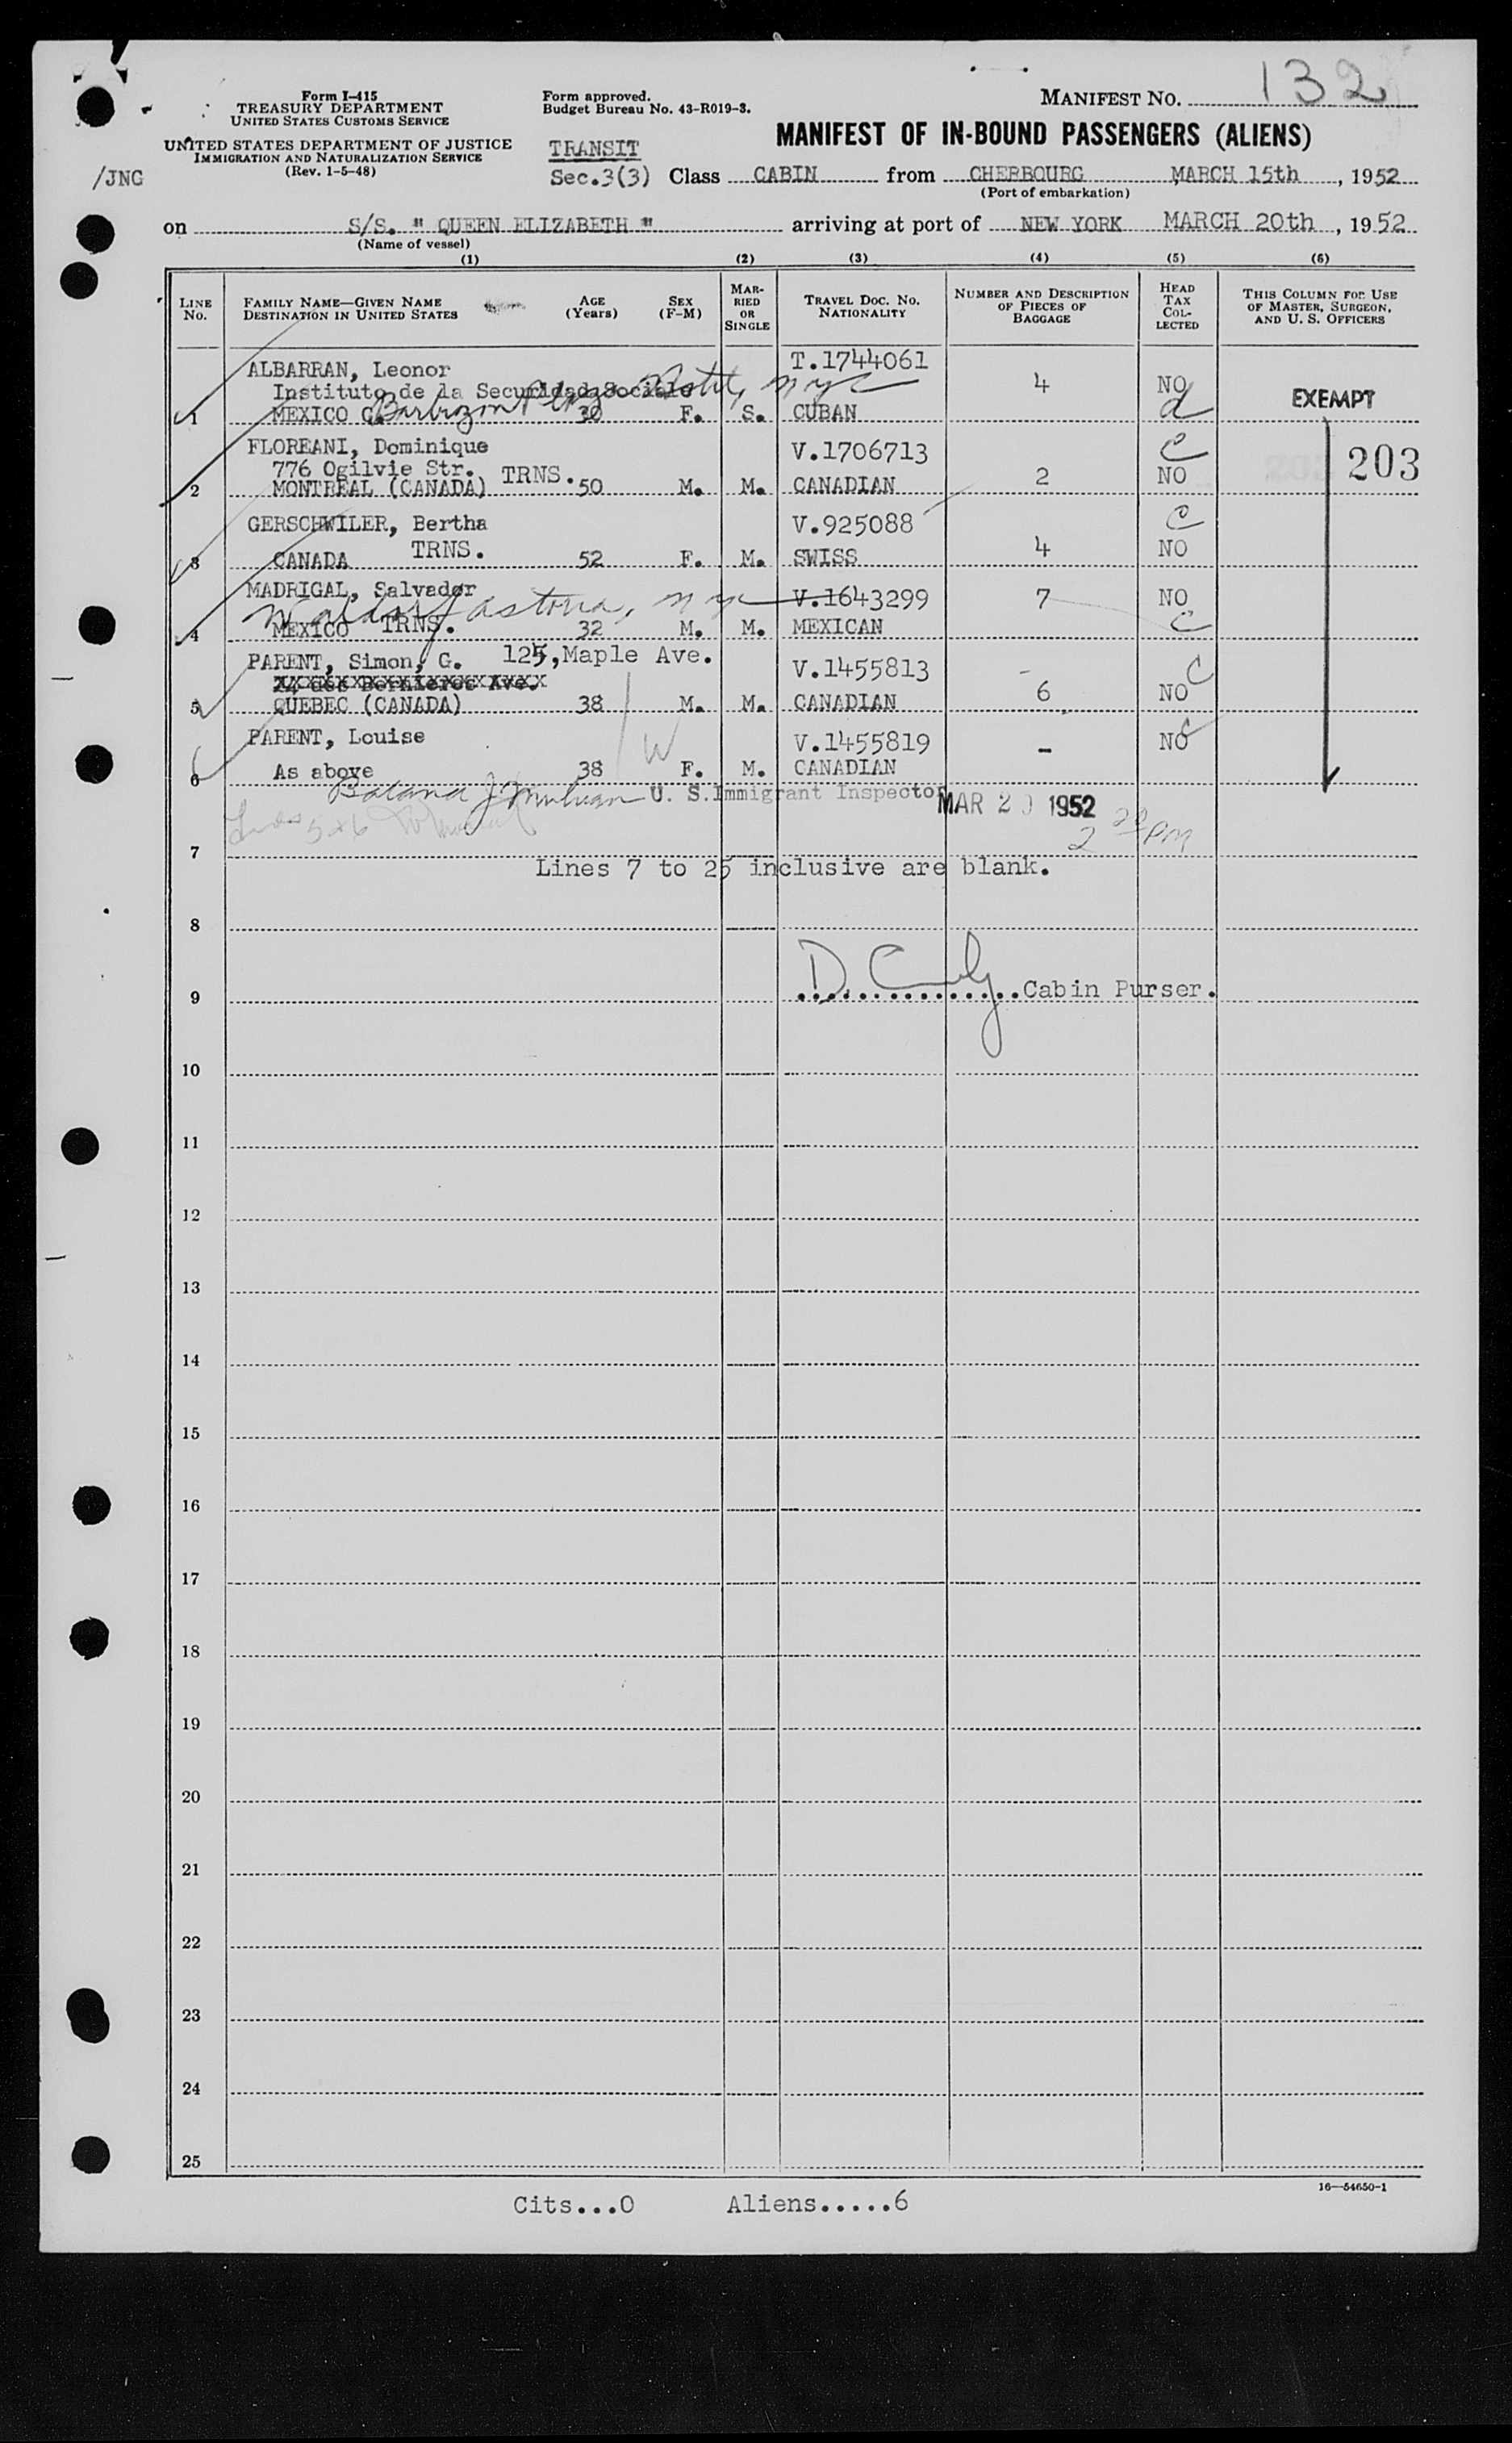 132
Form I-415
TREASURY DEPARTMENT
UNITED STATES CUSTOMS SERVICE
Form approved.
Budget Bureau No. 43-R019-3.
MANIFEST NO.
UNITED STATES DEPARTMENT OF JUSTICE
IMMIGRATION AND NATURALIZATION SERVICE
(Rev. 1-5-48)
MANIFEST OF IN-BOUND PASSENGERS (ALIENS)
/JNG
TRANSIT
Sec.3(3) Class CABIN from CHERBOURG MARCH 15th, 1952
(Port of embarkation)
on S/S. " QUEEN ELIZABETH " arriving at port of NEW YORK MARCH 20th, 1952
(Name of vessel)
(1) (2) (3) (4) (5) (6)
LINE NO.
FAMILY NAME—GIVEN NAME
DESTINATION IN UNITED STATES
AGE (Years)
SEX (F-M)
MARRIED OR SINGLE
TRAVEL DOC. NO.
NATIONALITY
NUMBER AND DESCRIPTION OF PIECES OF BAGGAGE
HEAD TAX COLLECTED
THIS COLUMN FOR USE OF MASTER, SURGEON, AND U. S. OFFICERS
ALBARRAN, Leonor T.1744061
Instituto de la Securidad Sociale 4 NO EXEMPT
Barbizon Plaza Hotel, nyc d
1 MEXICO C. 30 F. S. CUBAN
FLOREANI, Dominique V.1706713 C
776 Ogilvie Str. TRNS. 203
2 MONTREAL (CANADA) 50 M. M. CANADIAN 2 NO
GERSCHWILER, Bertha V.925088 C
3 CANADA TRNS. 52 F. M. SWISS 4 NO
MADRIGAL, Salvador V.1643299 7 NO
Waldorf Astoria, nyc C
4 MEXICO TRNS. 32 M. M. MEXICAN
PARENT, Simon, G. 125, Maple Ave. V.1455813 C
24 des Bernieres Ave.
5 QUEBEC (CANADA) 38 M. M. CANADIAN 6 NO
PARENT, Louise V.1455819 - NO C
6 As above 38 W F. M. CANADIAN
U. S. Immigrant Inspector MAR 20 1952
Lines 5 & 6
2 PM
7
Lines 7 to 25 inclusive are blank.
8
9 Cabin Purser.
10
11
12
13
14
15
16
17
18
19
20
21
22
23
24
25
16—54650-1
Cits...0 Aliens.....6